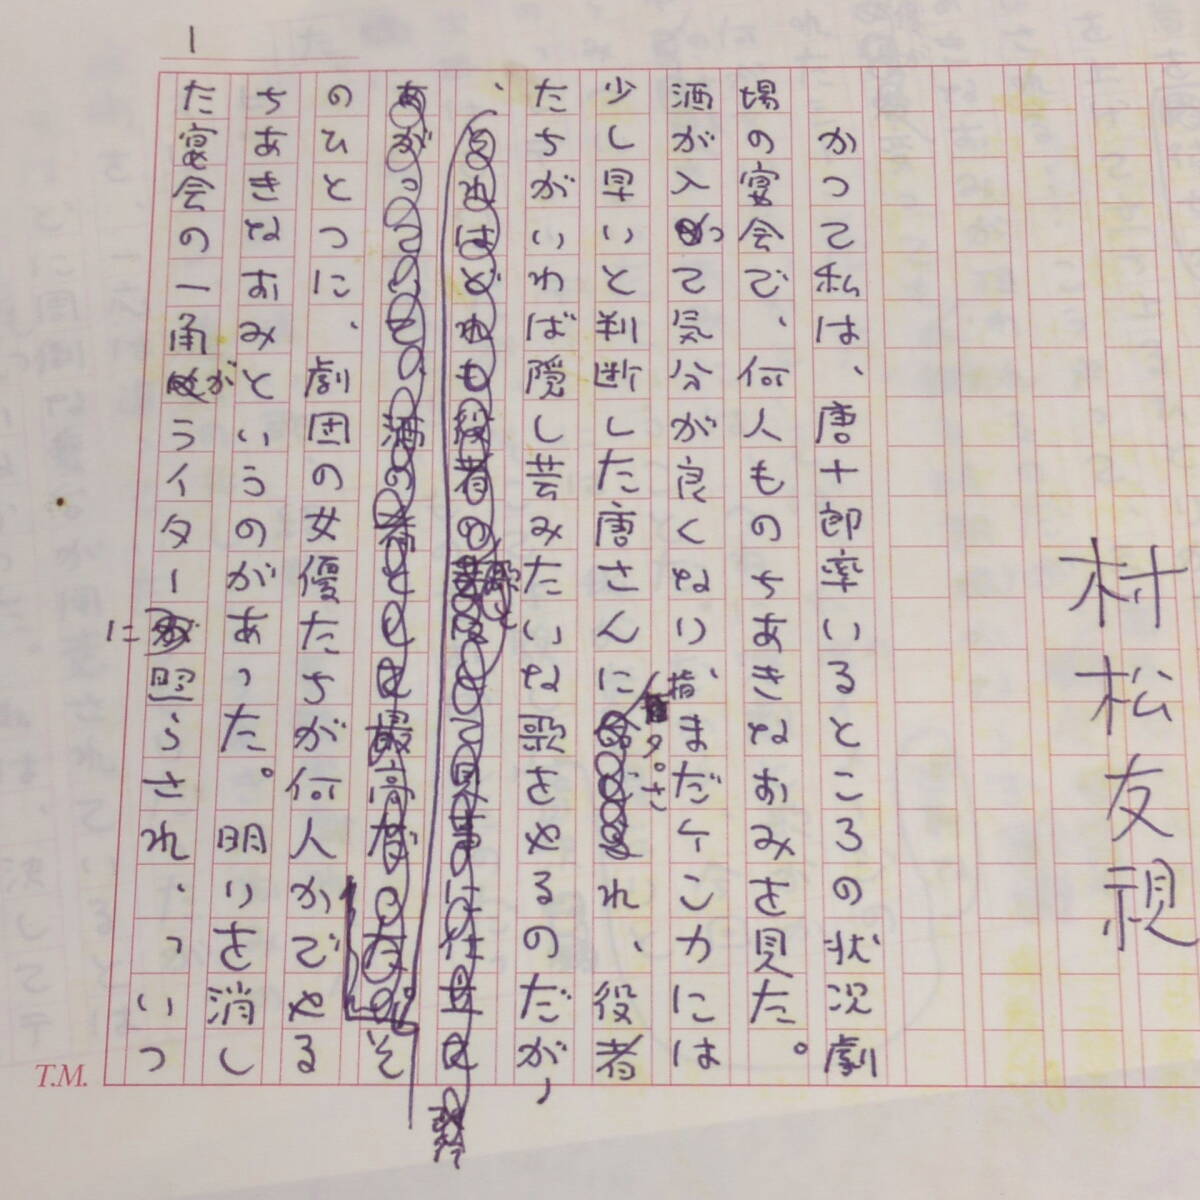 村松友視
かつて私は、唐十郎率いるところの状況劇
場の宴会で、何人ものちあきなおみを見た。
酒が入って気分が良くなり、まだケンカには
少し早いと判断した唐さんに指名され、役者
たちがいわば隠し芸みたいな歌をやるのだが、
そ
のひとつに、劇団の女優たちが何人かでやる
ちあきなおみというのがあった。明りを消し
た宴会の一角がライターに照らされ、いつ
1
T.M.